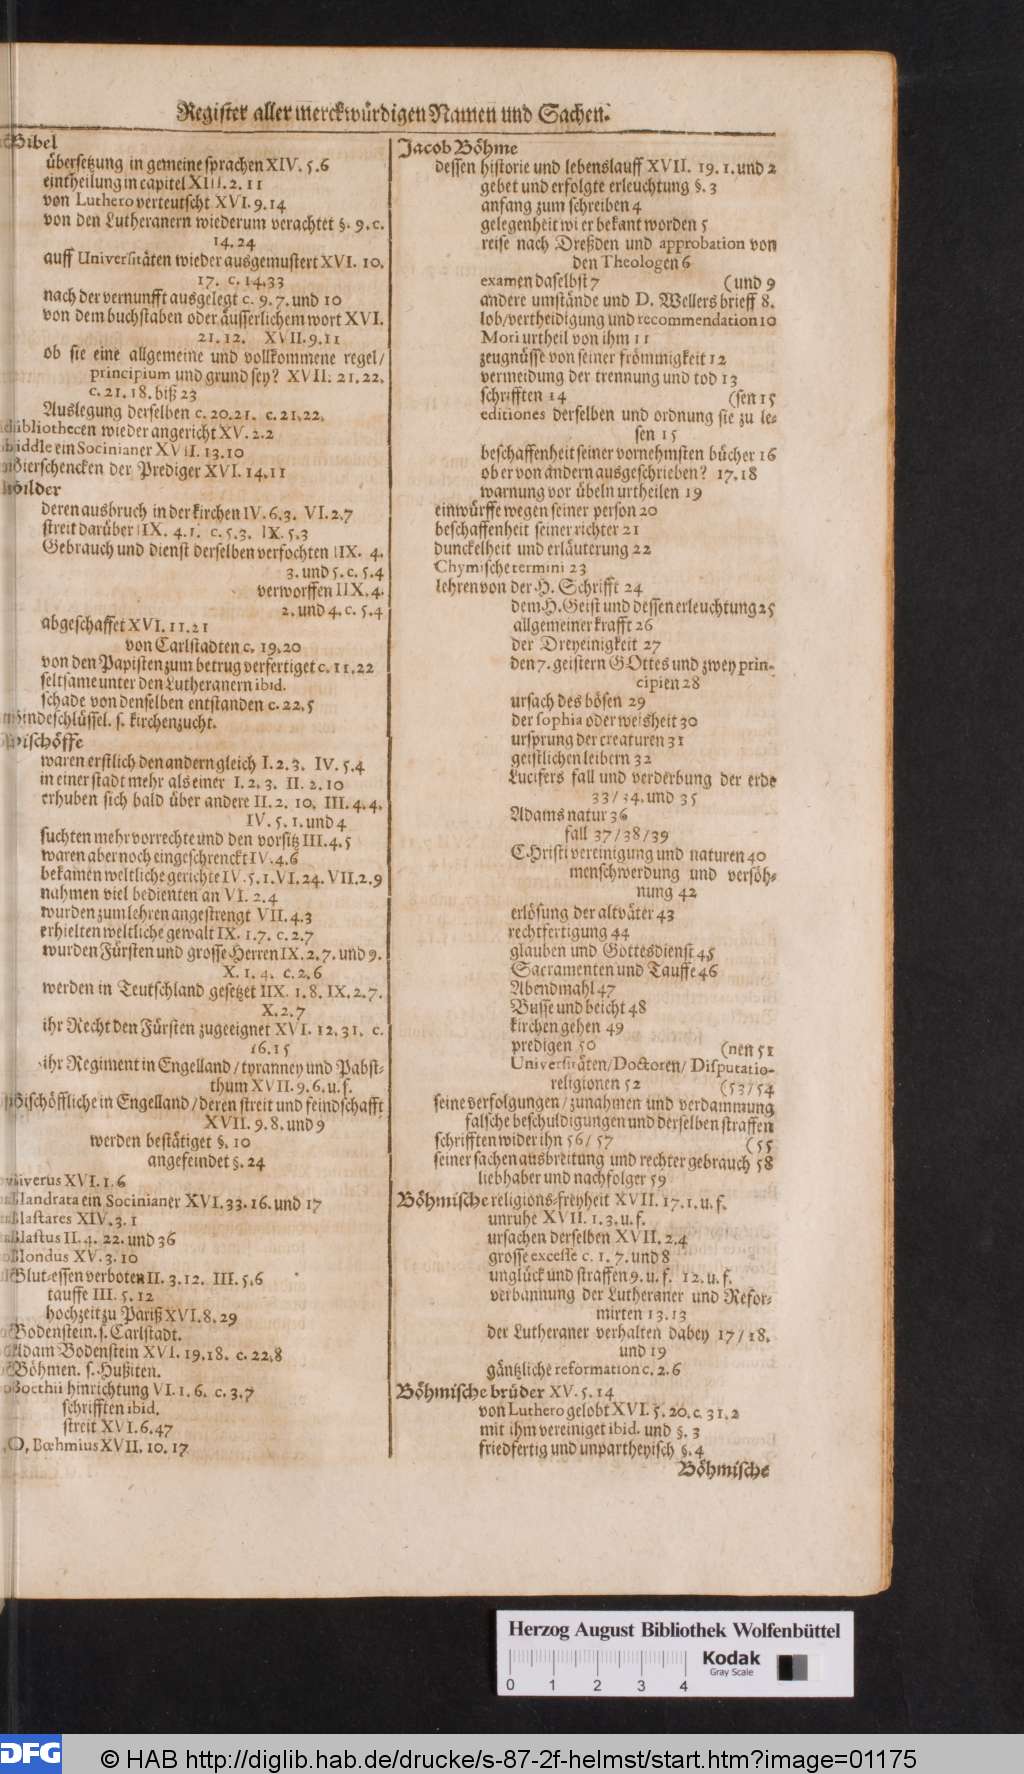 Register aller merckwürdigen Namen und Sachen.
Bibel
übersetzung in gemeine sprachen XIV. 5. 6
eintheilung in capitel XIII. 2. 11
von Luthero verteutscht XVI. 9. 14
von den Lutheranern wiederum verachtet §. 9. c.
14. 24
auff Universitäten wieder ausgemustert XVI. 10.
17. c. 14. 33
nach der vernunfft ausgelegt c. 9. 7. und 10
von dem buchstaben oder äusserlichem wort XVI.
21. 12. XVII. 9. 11
ob sie eine allgemeine und vollkommene regel/
principium und grund sey? XVII. 21. 22.
c. 21. 18. biß 23
Auslegung derselben c. 20. 21. c. 21. 22.
Bibliothecen wieder angericht XV. 2. 2
Biddle ein Socinianer XVII. 13. 10
Bierschencken der Prediger XVI. 14. 11
Bilder
deren ausbruch in der kirchen IV. 6. 3. VI. 2. 7
streit darüber IIX. 4. 1. c. 5. 3. IX. 5. 3
Gebrauch und dienst derselben verfochten IIX. 4.
3. und 5. c. 5. 4
verworffen IIX. 4.
2. und 4. c. 5. 4
abgeschaffet XVI. 11. 21
von Carlstadten c. 19. 20
von den Papisten zum betrug verfertiget c. 11. 22
seltsame unter den Lutheranern ibid.
schade von denselben entstanden c. 22. 5
Bindeschlüssel. s. kirchenzucht.
Bischöffe
waren erstlich den andern gleich I. 2. 3. IV. 5. 4
in einer stadt mehr als einer I. 2. 3. II. 2. 10
erhuben sich bald über andere II. 2. 10. III. 4. 4.
IV. 5. 1. und 4
suchten mehr vorrechte und den vorsitz III. 4. 5
waren aber noch eingeschrenckt IV. 4. 6
bekamen weltliche gerichte IV. 5. 1. VI. 24. VII. 2. 9
nahmen viel bedienten an VI. 2. 4
wurden zum lehren angestrengt VII. 4. 3
erhielten weltliche gewalt IX. 1. 7. c. 2. 7
wurden Fürsten und grosse Herren IX. 2. 7. und 9.
X. 1. 4. c. 2. 6
werden in Teutschland gesetzet IIX. 1. 8. IX. 2. 7.
X. 2. 7
ihr Recht den Fürsten zugeeignet XVI. 12. 31. c.
16. 15
ihr Regiment in Engelland/ tyranney und Pabst-
thum XVII. 9. 6. u. f.
Bischöffliche in Engelland/ deren streit und feindschafft
XVII. 9. 8. und 9
werden bestätiget §. 10
angefeindet §. 24
Biverus XVI. 1. 6
Blandrata ein Socinianer XVI. 33. 16. und 17
Blastares XIV. 3. 1
Blastus II. 4. 22. und 36
Blondus XV. 3. 10
Blut-essen verboten II. 3. 12. III. 5. 6
tauffe III. 5. 12
hochzeit zu Pariß XVI. 8. 29
Bodenstein. s. Carlstadt.
Adam Bodenstein XVI. 19. 18. c. 22. 8
Böhmen. s. Hußiten.
Boethii hinrichtung VI. 1. 6. c. 3. 7
schrifften ibid.
streit XVI. 6. 47
O. Bœhmius XVII. 10. 17
Jacob Böhme
dessen historie und lebenslauff XVII. 19. 1. und 2
gebet und erfolgte erleuchtung §. 3
anfang zum schreiben 4
gelegenheit wi er bekant worden 5
reise nach Dreßden und approbation von
den Theologen 6
examen daselbst 7 (und 9
andere umstände und D. Wellers brieff 8.
lob/ vertheidigung und recommendation 10
Mori urtheil von ihm 11
zeugnüsse von seiner frömmigkeit 12
vermeidung der trennung und tod 13
schrifften 14 (sen 15
editiones derselben und ordnung sie zu le-
sen 15
beschaffenheit seiner vornehmsten bücher 16
ob er von andern ausgeschrieben? 17. 18
warnung vor übeln urtheilen 19
einwürffe wegen seiner person 20
beschaffenheit seiner richter 21
dunckelheit und erläuterung 22
Chymische termini 23
lehren von der H. Schrifft 24
dem H. Geist und dessen erleuchtung 25
allgemeiner krafft 26
der Dreyeinigkeit 27
den 7. geistern GOttes und zwey prin-
cipien 28
ursach des bösen 29
der sophia oder weisheit 30
ursprung der creaturen 31
geistlichen leibern 32
Lucifers fall und verderbung der erde
33/ 34. und 35
Adams natur 36
fall 37/ 38/ 39
CHristi vereinigung und naturen 40
menschwerdung und versöh-
nung 42
erlösung der altväter 43
rechtfertigung 44
glauben und Gottesdienst 45
Sacramenten und Tauffe 46
Abendmahl 47
Busse und beicht 48
kirchen gehen 49
predigen 50 (nen 51
Universitäten/ Doctoren/ Disputatio-
religionen 52 (53/ 54
seine verfolgungen/ zunahmen und verdammung
falsche beschuldigungen und derselben straffen
schrifften wider ihn 56/ 57 (55
seiner sachen ausbreitung und rechter gebrauch 58
liebhaber und nachfolger 59
Böhmische religions-freyheit XVII. 17. 1. u. f.
unruhe XVII. 1. 3. u. f.
ursachen derselben XVII. 2. 4
grosse excesse c. 1. 7. und 8
unglück und straffen 9. u. f. 12. u. f.
verbannung der Lutheraner und Refor-
mirten 13. 13
der Lutheraner verhalten dabey 17/ 18.
und 19
gäntzliche reformation c. 2. 6
Böhmische brüder XV. 5. 14
von Luthero gelobt XVI. 5. 20. c. 31. 2
mit ihm vereiniget ibid. und §. 3
friedfertig und unpartheyisch §. 4
Böhmische
Herzog August Bibliothek Wolfenbüttel
Kodak
Gray Scale
0 1 2 3 4
DFG
© HAB http://diglib.hab.de/drucke/s-87-2f-helmst/start.htm?image=01175